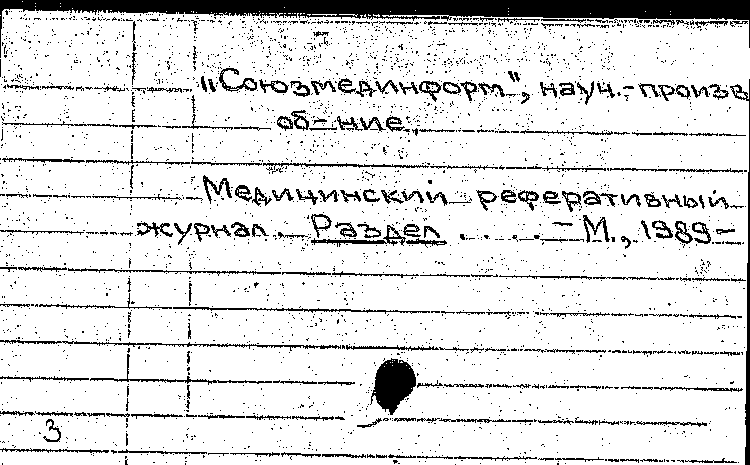 „Союзмединформ", науч.-произв
об-ние.
Медицинский реферативный
журнал. Раздел . . . . – М., 1989-
3